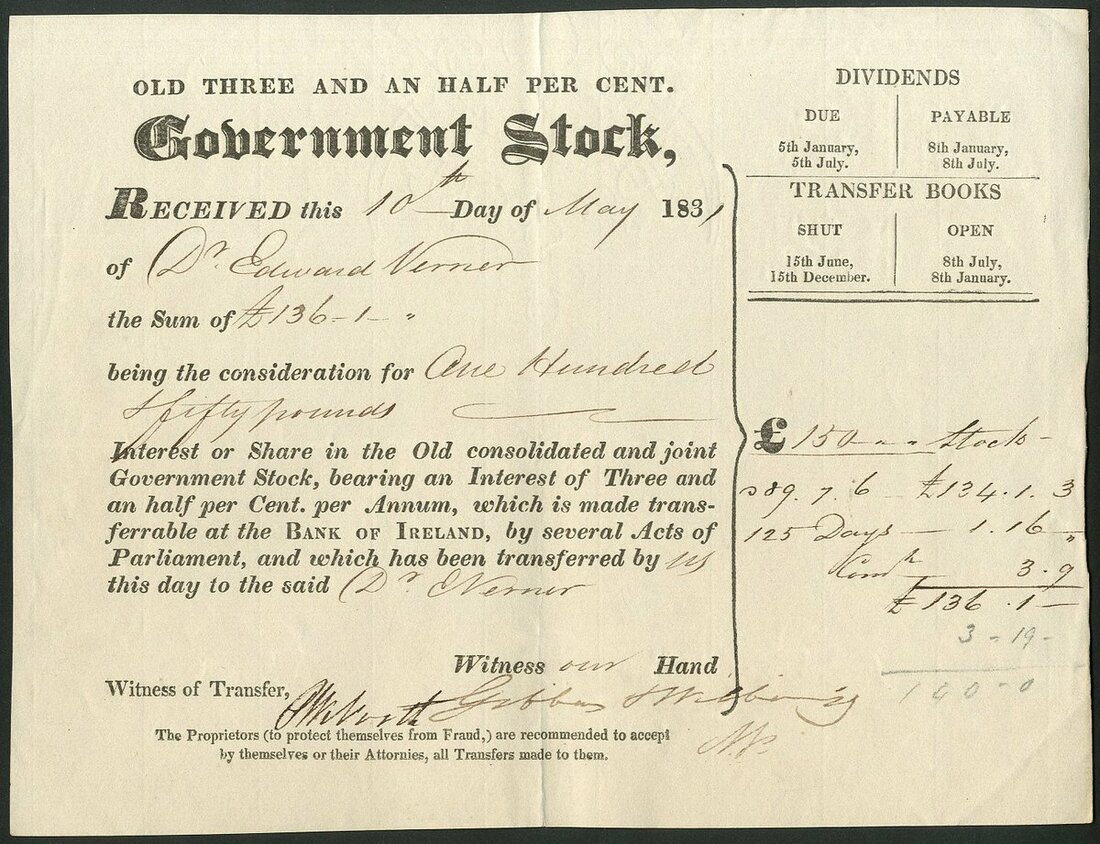 OLD THREE AND AN HALF PER CENT.
Government Stock,
RECEIVED this 10th Day of May 1831
of Dr. Edward Verner
the Sum of £136-1-"
being the consideration for One Hundred
& fifty pounds
Interest or Share in the Old consolidated and joint
Government Stock, bearing an Interest of Three and
an half per Cent. per Annum, which is made trans-
ferrable at the BANK OF IRELAND, by several Acts of
Parliament, and which has been transferred by us
this day to the said Dr. E Verner
Witness our Hand
Witness of Transfer,
The Proprietors (to protect themselves from Fraud,) are recommended to accept
by themselves or their Attornies, all Transfers made to them.
DIVIDENDS
DUE PAYABLE
5th January, 8th January,
5th July. 8th July.
TRANSFER BOOKS
SHUT OPEN
15th June, 8th July,
15th December. 8th January.
£ 150 " " Stock-
89.7.6 £134.1.3
125 Days 1.16 "
3.9
£136.1-
3-19-
140-0